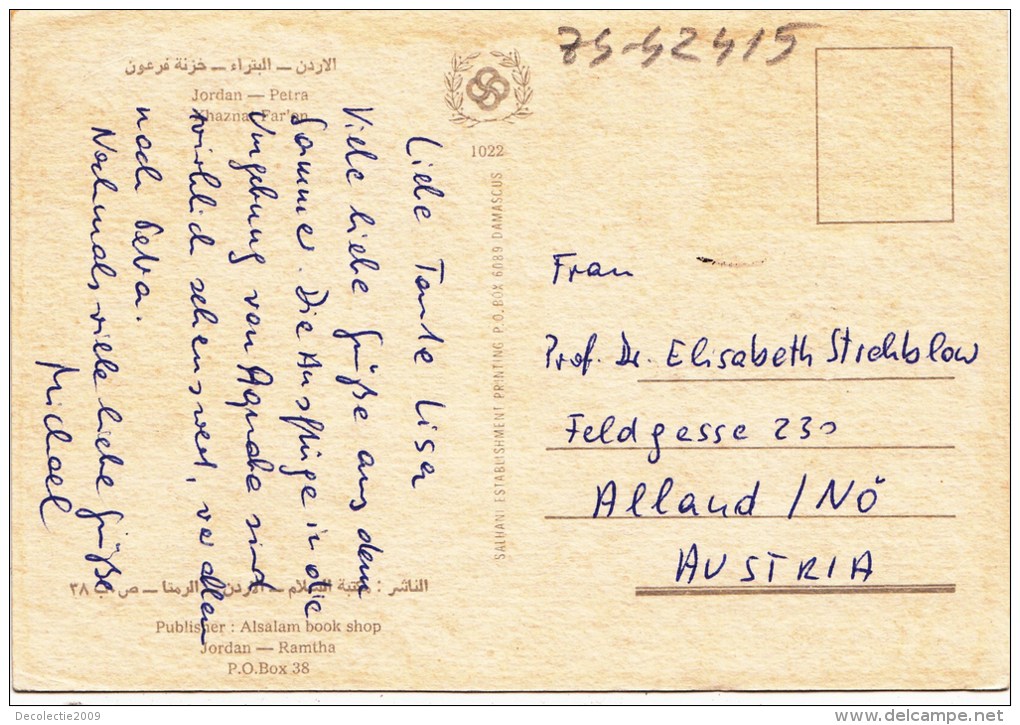 75-52415
الاردن ــ البتراء ــ خزنة فرعون
Jordan — Petra
Khazna Far'on
1022
SALHANI ESTABLISHMENT PRINTING P.O.BOX 6089 DAMASCUS
Liebe Tante Lisa
Viele liebe Grüße aus dem
Sommer. Die Ausflüge in die
Umgebung von Aquaba sind
wirklich sehenswert, vor allem
nach Petra.
Nochmals viele liebe Grüße
Michael
Frau
Prof. Dr. Elisabeth
Feldgasse 230
Alland / NÖ
AUSTRIA
الناشر : مكتبة السلام ــ الاردن ــ الرمثا ــ ص ب ٣٨
Publisher : Alsalam book shop
Jordan — Ramtha
P.O.Box 38
Decolectie2009
delcampe.net